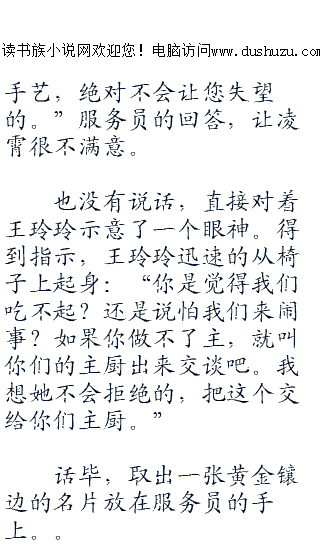 读书族小说网欢迎您！电脑访问www.dushuzu.com
手艺，绝对不会让您失望
的。”服务员的回答，让凌
霄很不满意。
也没有说话，直接对着
王玲玲示意了一个眼神。得
到指示，王玲玲迅速的从椅
子上起身：“你是觉得我们
吃不起？还是说怕我们来闹
事？如果你做不了主，就叫
你们的主厨出来交谈吧。我
想她不会拒绝的，把这个交
给你们主厨。”
话毕，取出一张黄金镶
边的名片放在服务员的手
上。。